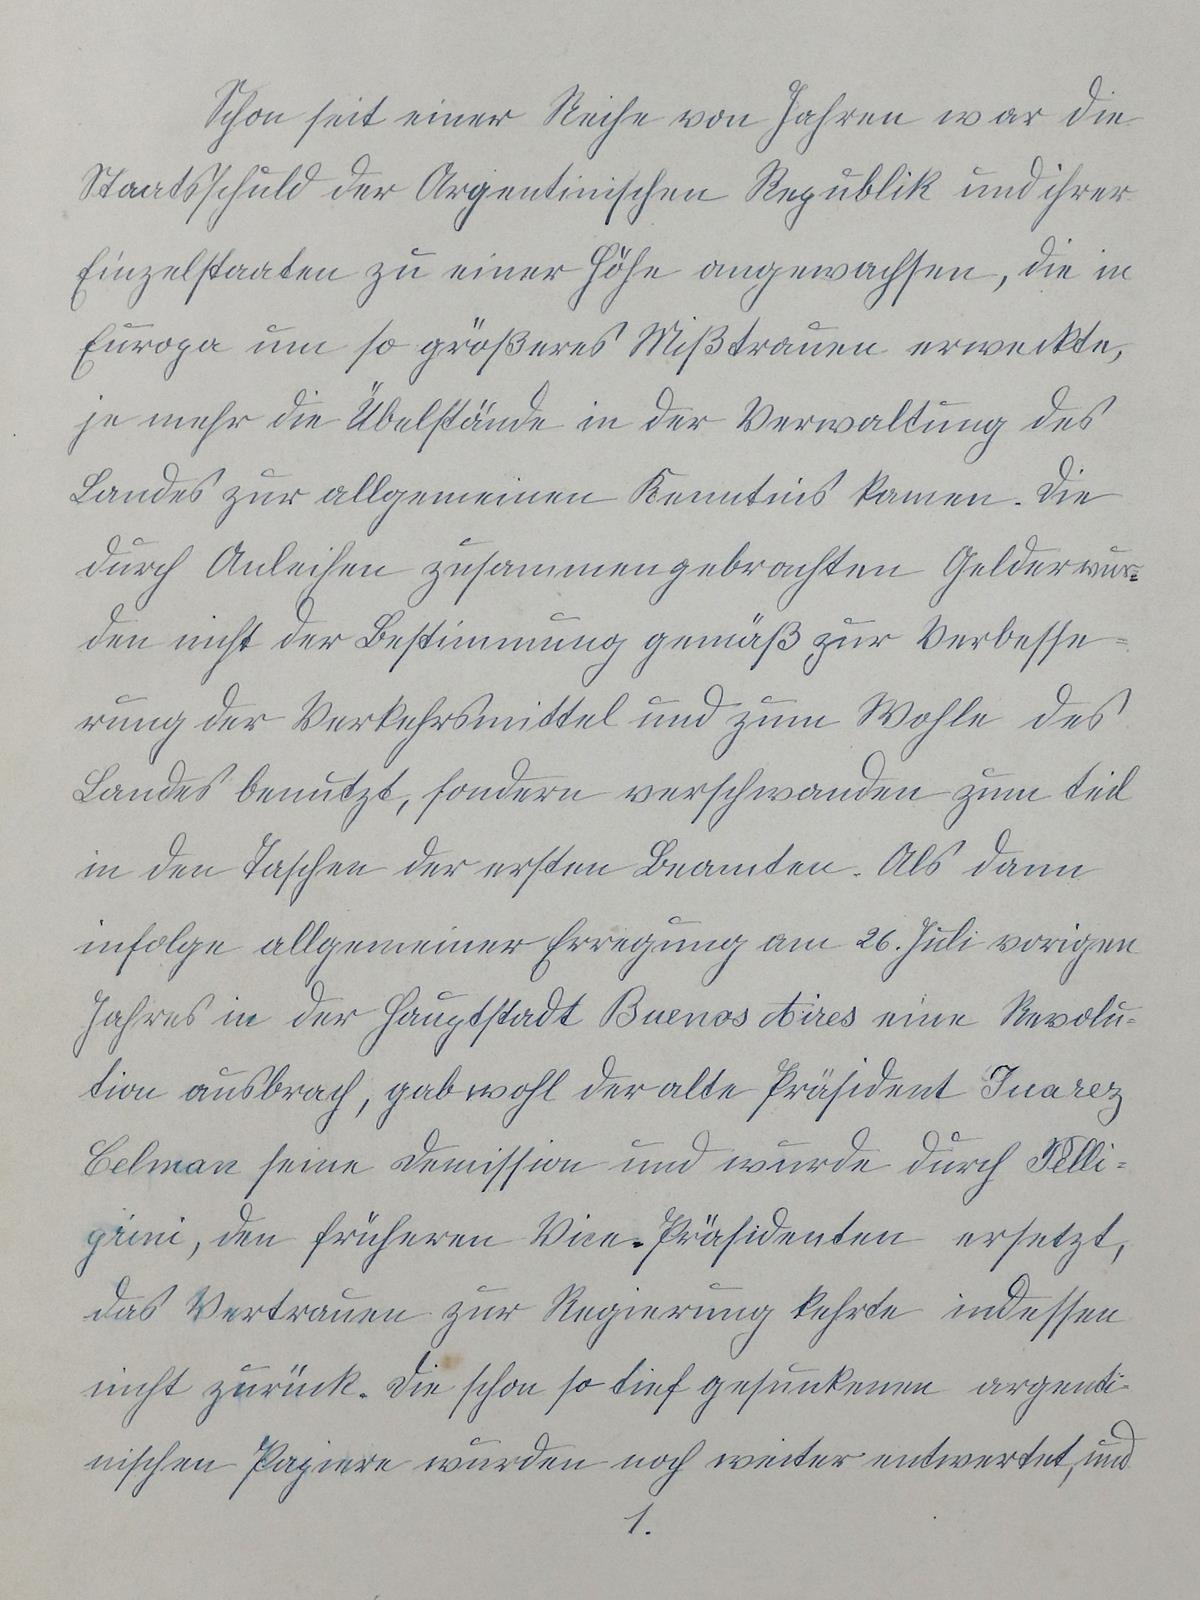 Schon seit einer Reihe von Jahren war die
Staatsschuld der Argentinischen Republik und ihrer
Einzelstaaten zu einer Höhe angewachsen, die in
Europa um so größeres Mißtrauen erweckte,
je mehr die Übelstände in der Verwaltung des
Landes zur allgemeinen Kenntnis kamen. Die
durch Anleihen zusammengebrachten Gelder wur=
den nicht der Bestimmung gemäß zur Verbesse=
rung der Verkehrsmittel und zum Wohle des
Landes benutzt, sondern verschwanden zum teil
in den Taschen der ersten Beamten. Als dann
infolge allgemeiner Erregung am 26. Juli vorigen
Jahres in der Hauptstadt Buenos Aires eine Revolu=
tion ausbrach, gab wohl der alte Präsident Juarez
Celman seine Demission und wurde durch Pelli=
grini, den früheren Vice-Präsidenten ersetzt,
das Vertrauen zur Regierung kehrte indessen
nicht zurück. Die schon so tief gesunkenen argenti-
nischen Papiere wurden noch weiter entwertet, und
1.